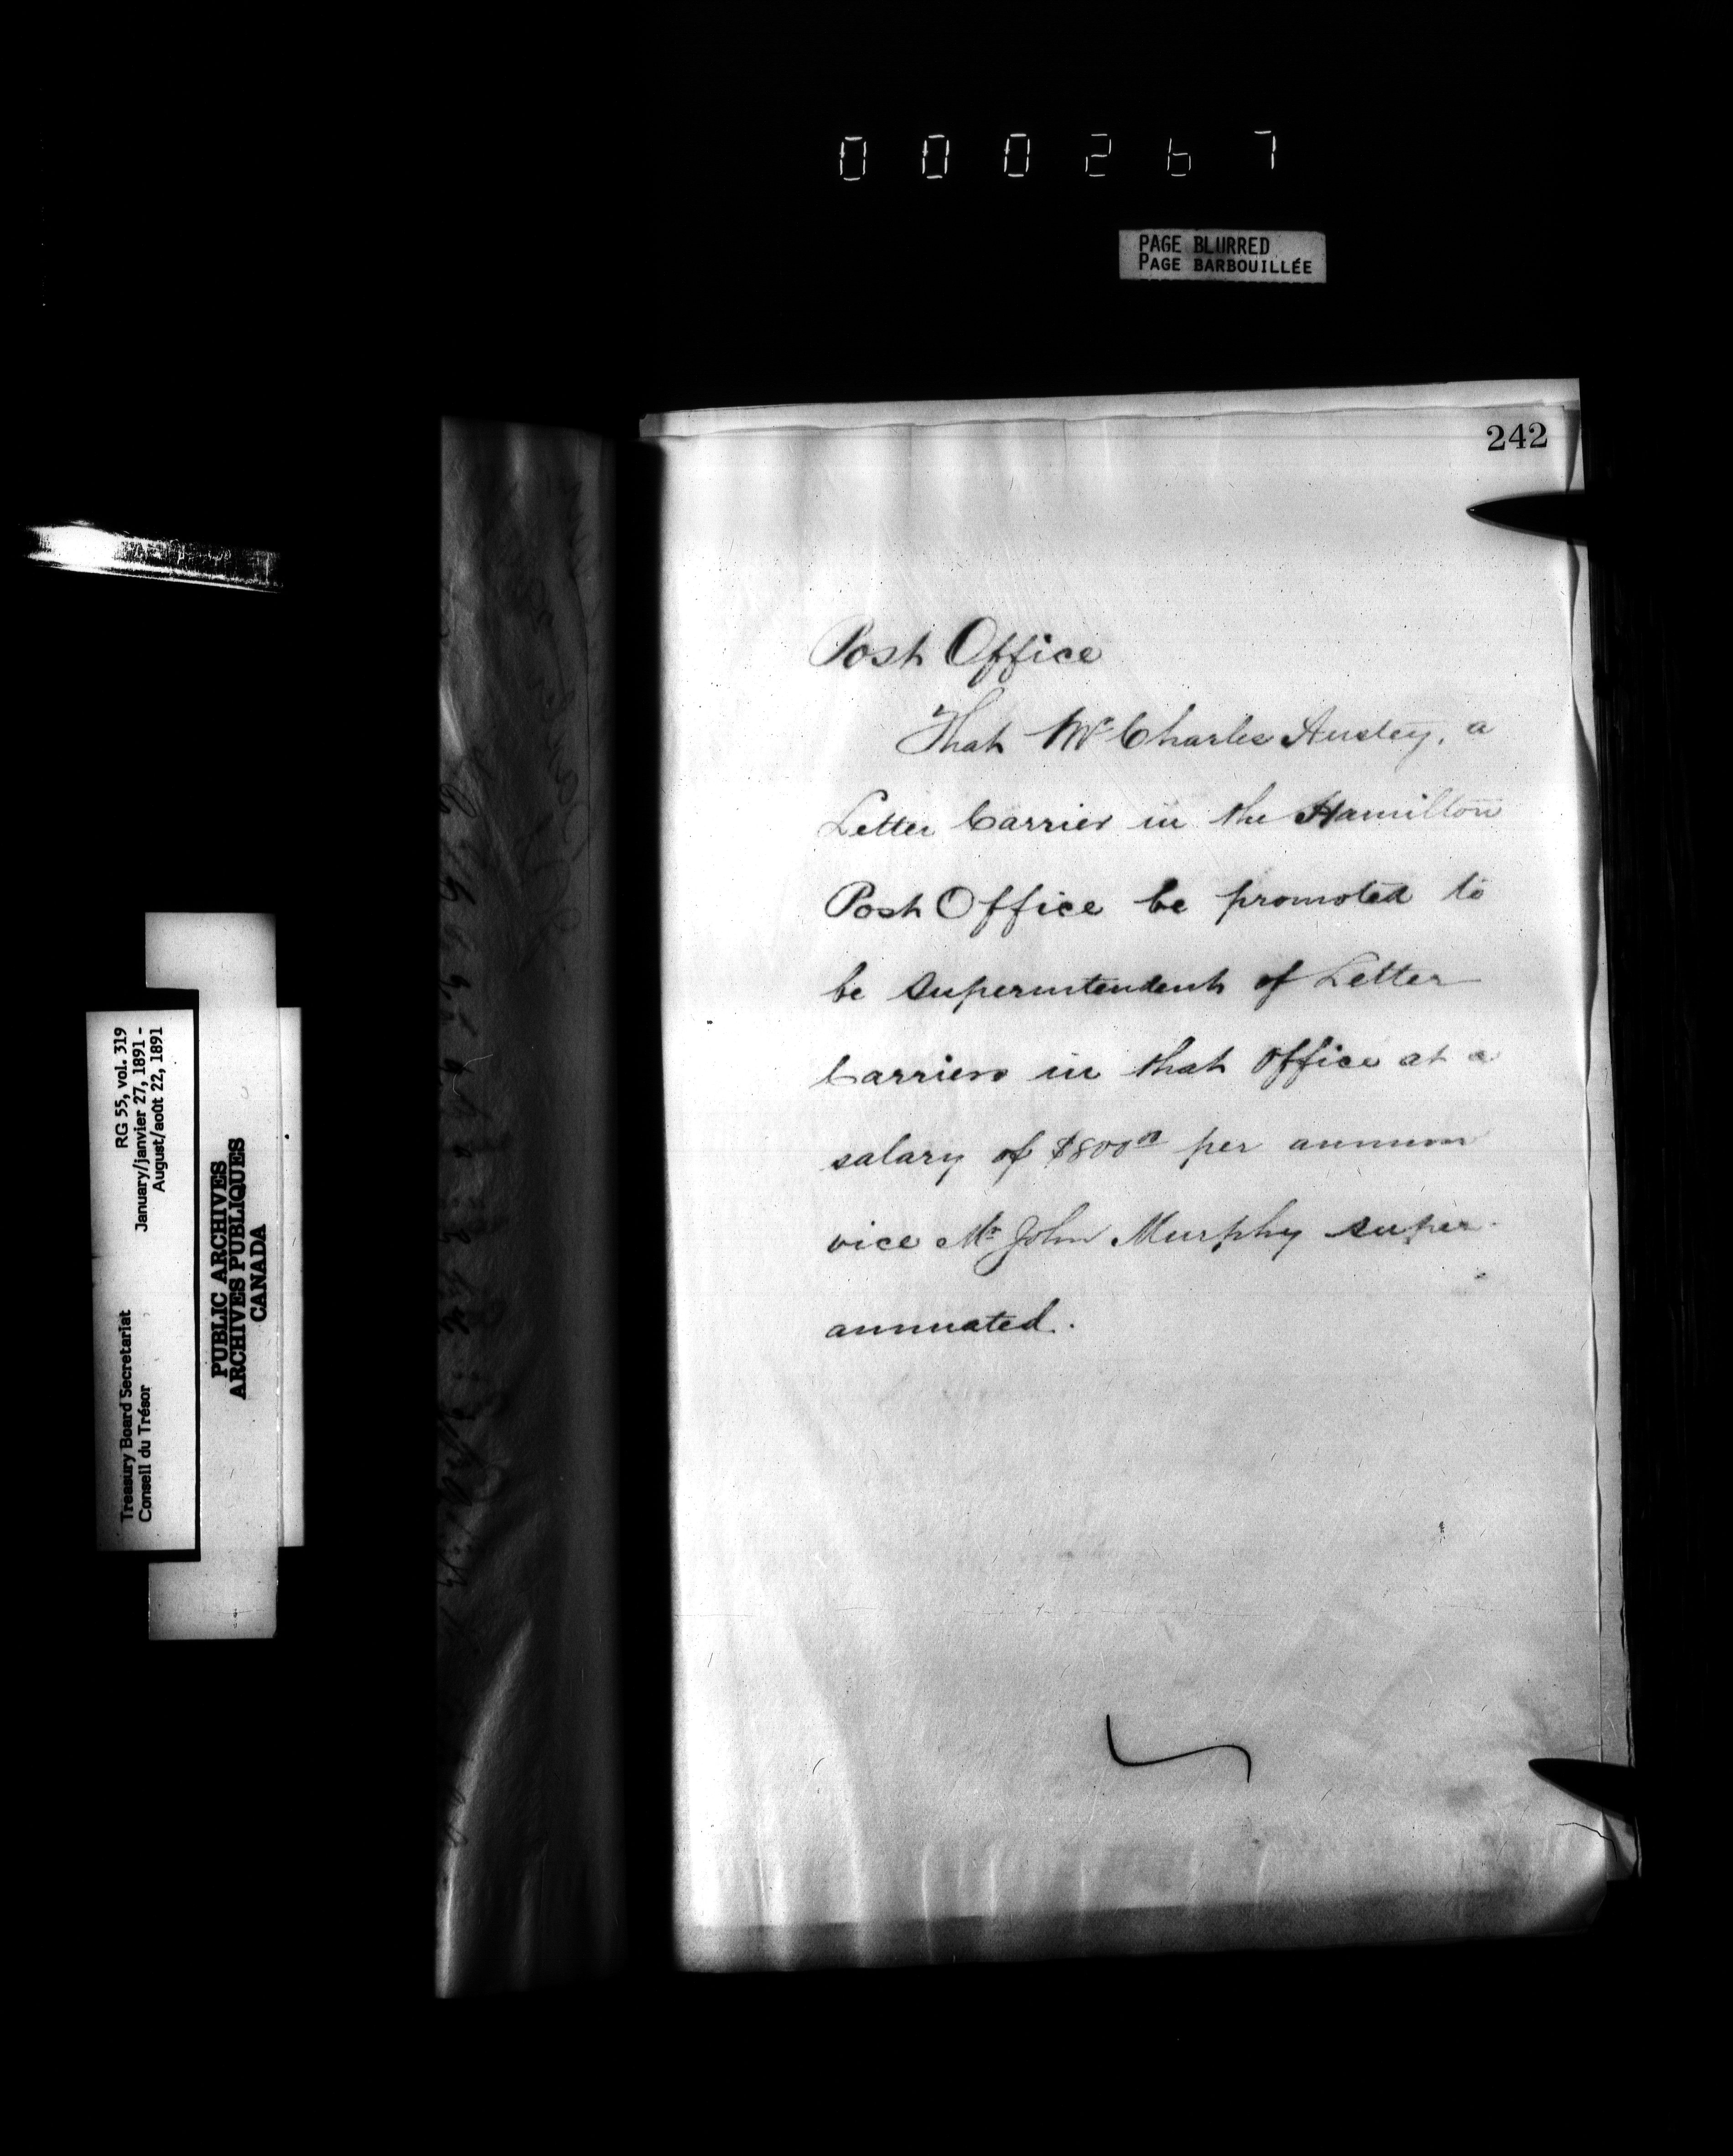 000267
PAGE BLURRED
PAGE BARBOUILLÉE
242
Post Office
That Mr Charles Austey, a
Letter Carrier in the Hamilton
Post Office be promoted to
be Superintendent of Letter
Carriers in that Office at a
salary of $800.00 per annum
vice Mr John Murphy super-
annuated.
Treasury Board Secretariat RG 55, vol. 319
Conseil du Trésor January/janvier 27, 1891 -
August/août 22, 1891
PUBLIC ARCHIVES
ARCHIVES PUBLIQUES
CANADA